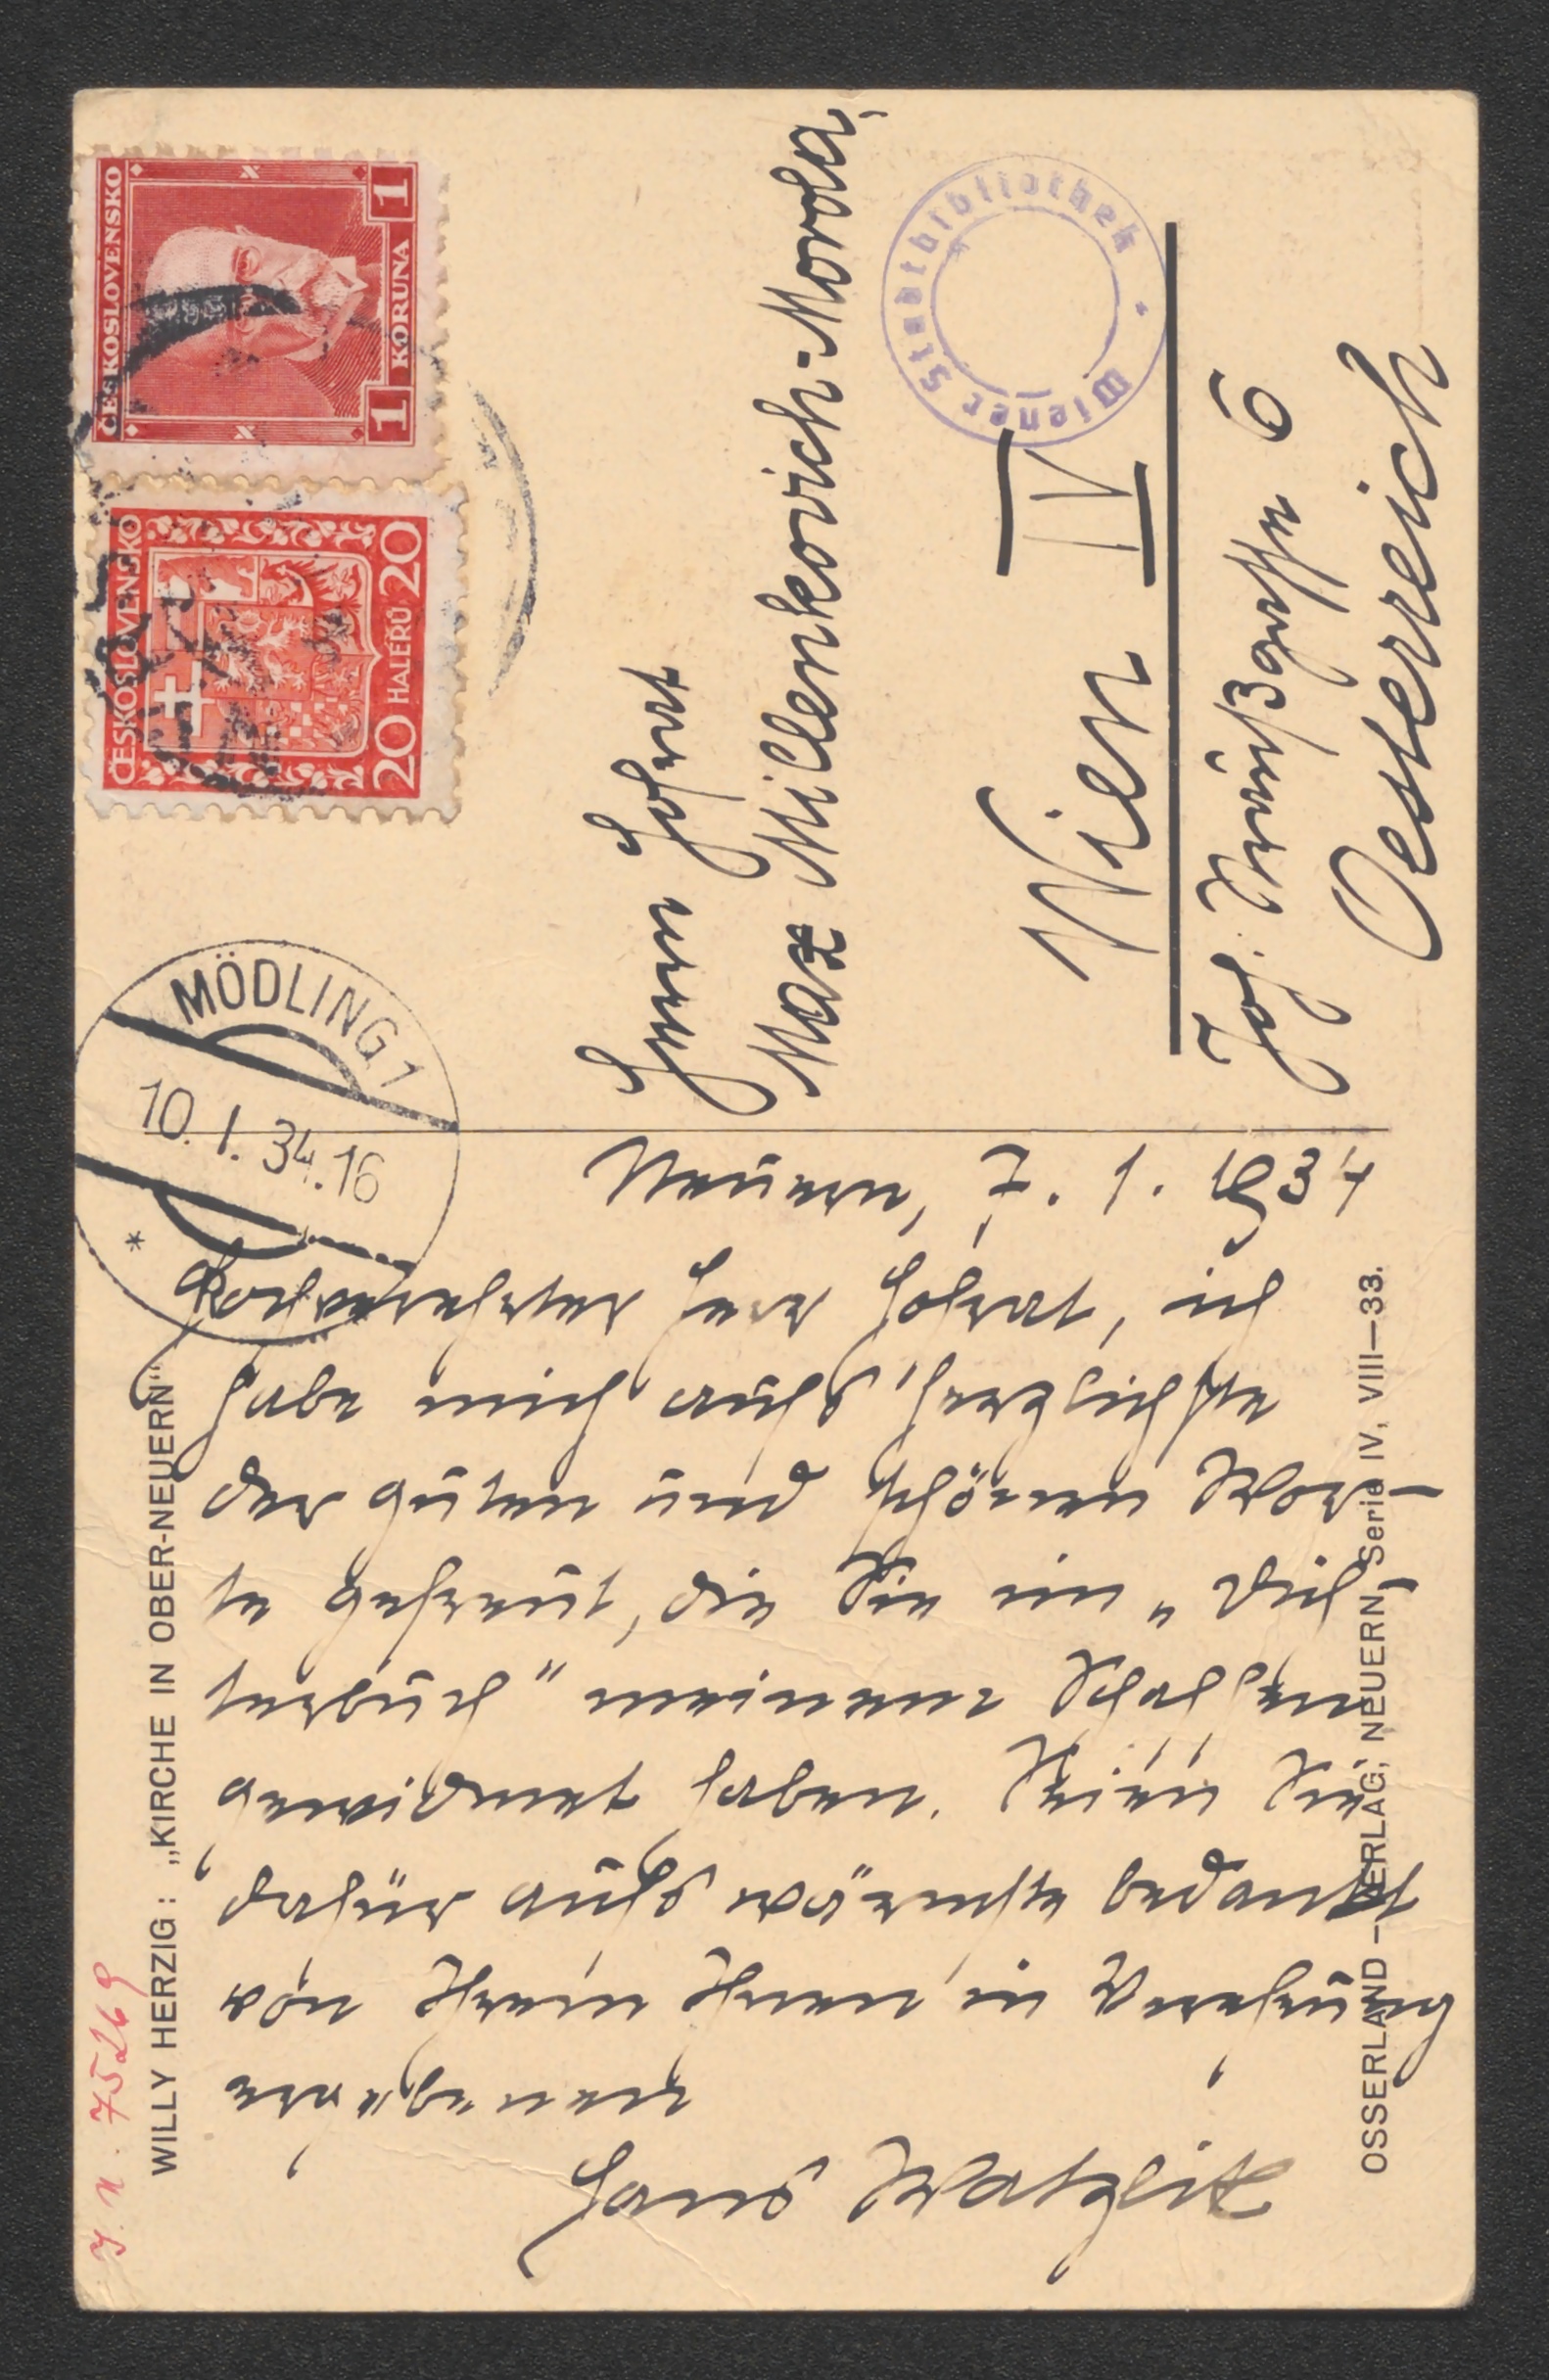 Neuern, 7. 1. 1934
Hochverehrter Herr Hofrat, ich
habe mich aufs herzlichste
der guten und schönen Wor-
te gefreut, die Sie im „Dich-
terbuch" meinem Schaffen
gewidmet haben. Seien Sie
dafür aufs wärmste bedankt
von Ihrem Ihnen in Verehrung
ergebenen
Hans Watzlik
Herrn Hofrat
Max Millenkovich-Morold,
Wien IV
Joh. Straußgasse 6
Oesterreich
ČESKOSLOVENSKO
1 KORUNA 1
ČESKOSLOVENSKO
20 HALÉRŮ 20
MÖDLING 1
10. I. 34. 16
*
Wiener Stadtbibliothek
WILLY HERZIG: „KIRCHE IN OBER-NEUERN"
OSSERLAND-VERLAG, NEUERN, Serie IV, VIII—33.
J. N. 75269